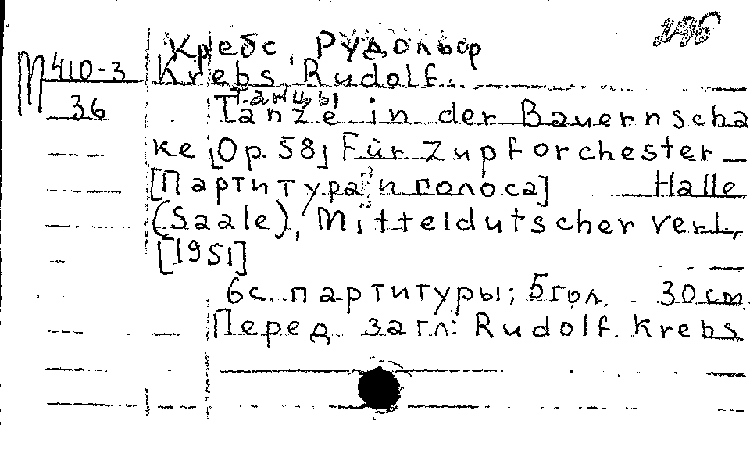 Кребс, Рудольф
М 410-3 Krebs, Rudolf.
Танцы
36 Tänze in der Bauernscha
ke [Op. 58] Für Zupforchester —
[Партитура и голоса] Halle
(Saale), Mitteldutscher verl.,
[1951]
6с. партитуры; 5гол. 30см.
Перед загл: Rudolf Krebs